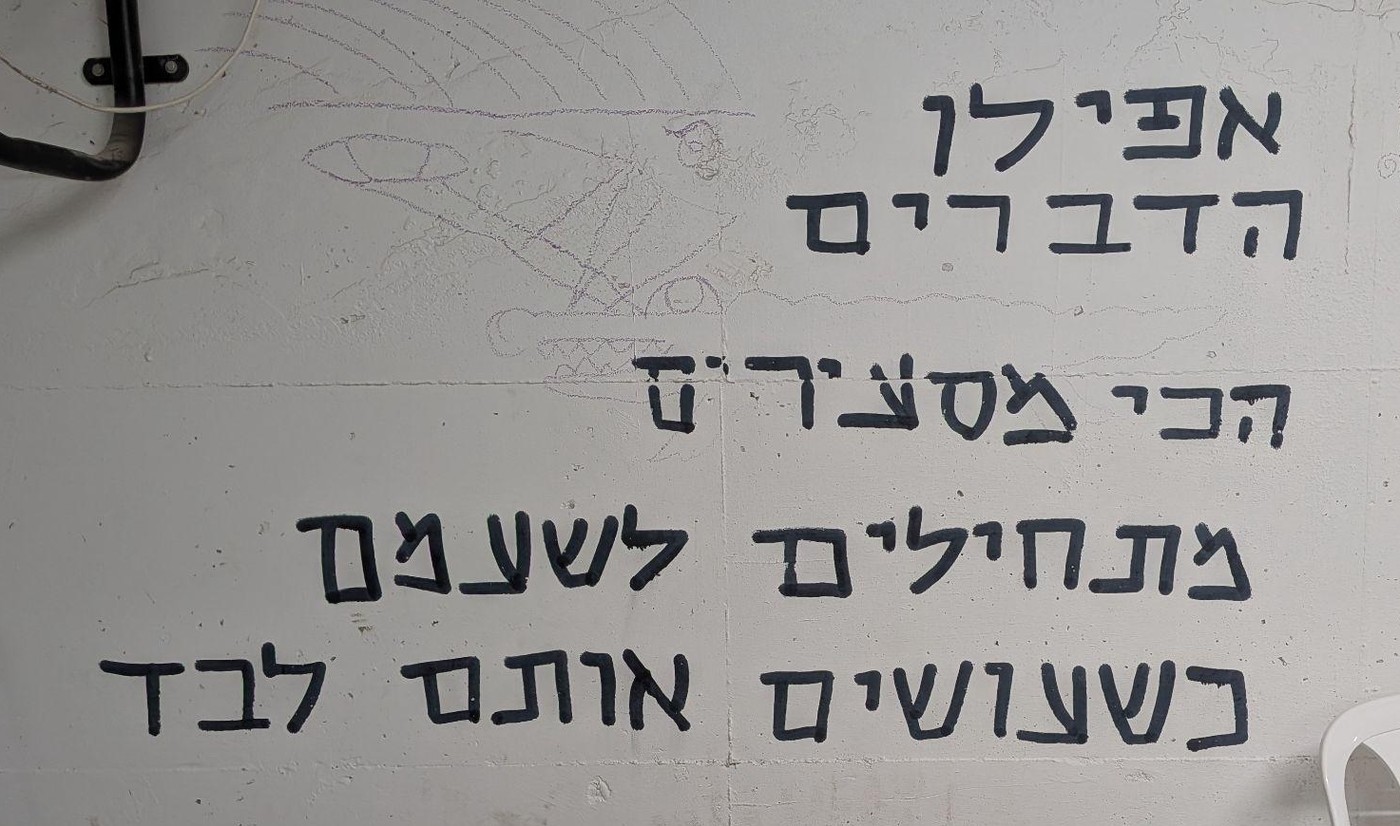 אפילו
הדברים
הכי מסעירים
מתחילים לשעמם
כשעושים אותם לבד